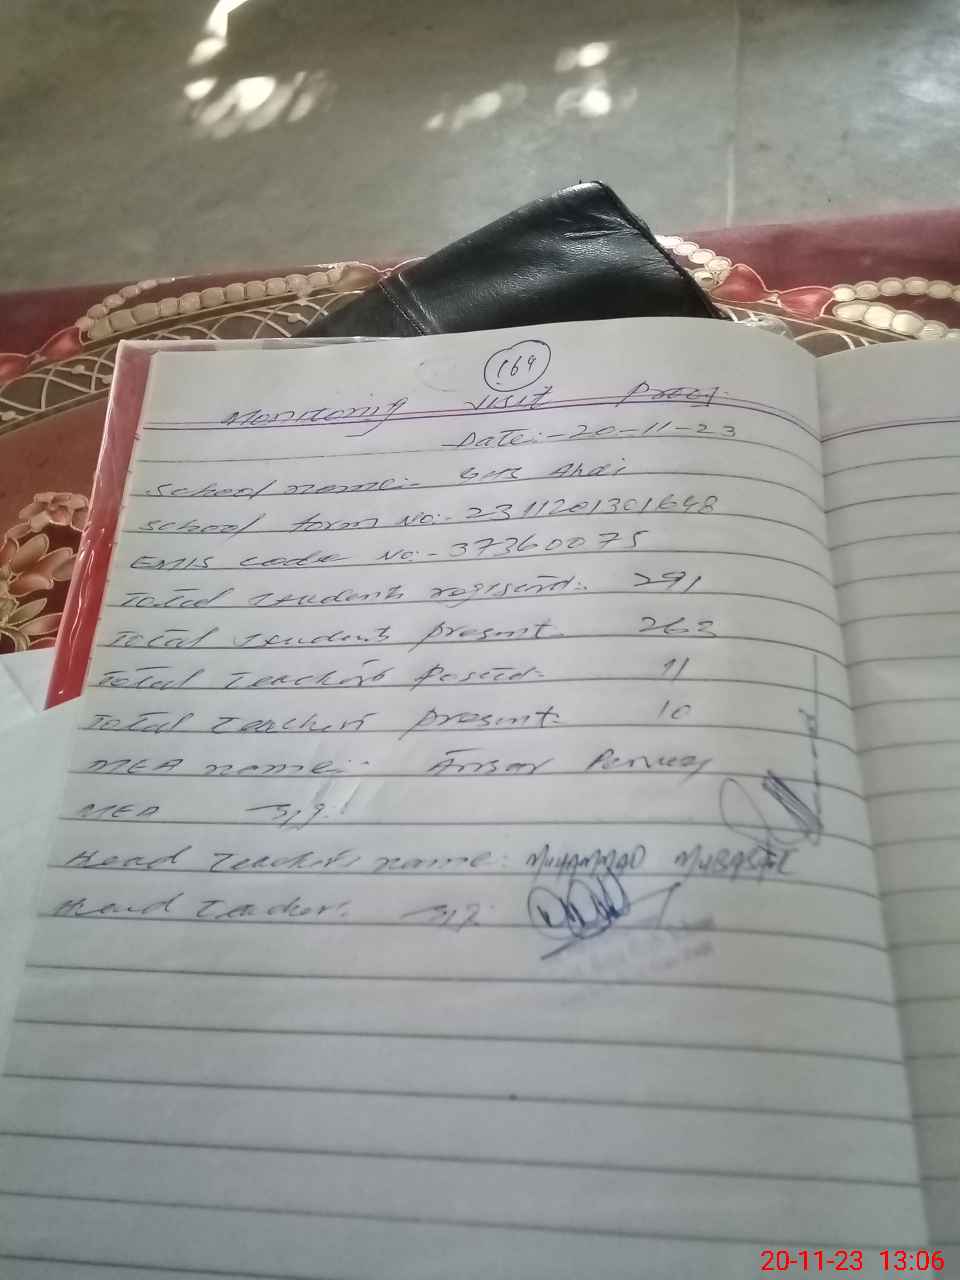 169
Monitoring Visit Proof
Date:- 20-11-23
School name:- GHS Ahdi
School form No:- 2311201301648
EMIS code No:- 37360075
Total students registerd:- 291
Total students present 263
Total Teachers Posted:- 11
Total Teachers present:- 10
MEA name:- Ansar Pervez
MEA Sig:
Head Teacher's name: MUHAMMAD
Head Teacher: Sig:
20-11-23 13:06